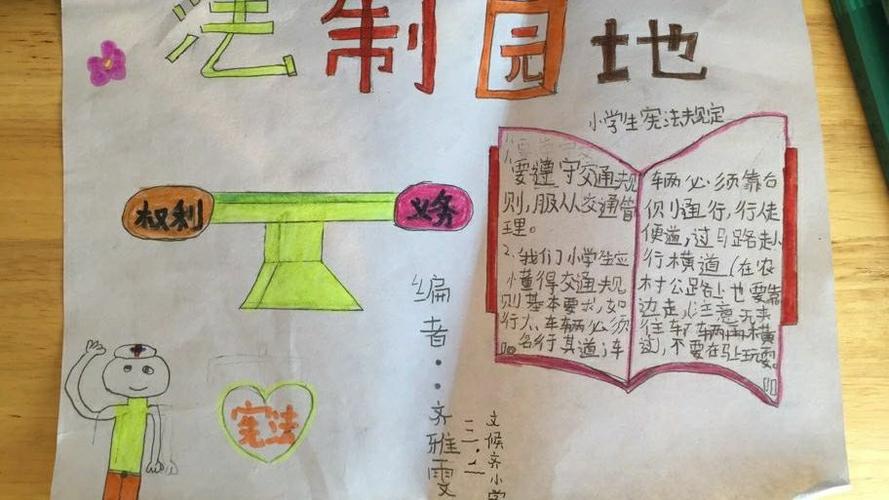 法制园地
小学生宪法规定
权利
义务
1.要遵守交通规
则,服从交通管
理。
2.我们小学生应
懂得交通规
则基本要求,如
行人车辆必须
各行其道;车
辆必须靠右
侧通行,行走
便道,过马路走人
行横道(在农
村公路上也要靠
边走,注意无来
往车辆再横
过),不要在马上玩耍。
宪法
编者:齐雅雯
三.二
文候齐小学